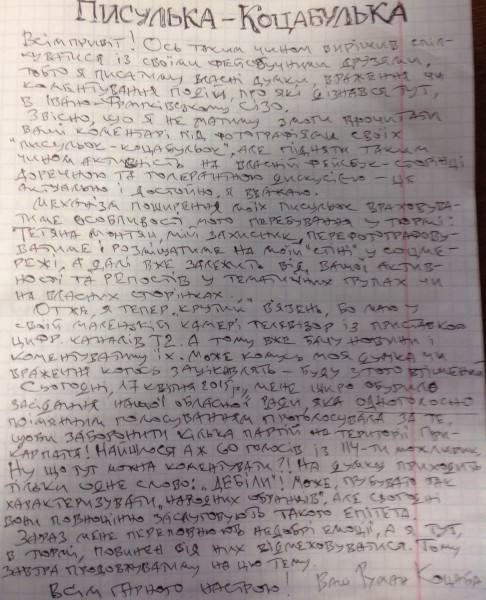 ПИСУЛЬКА-КОЦАБУЛЬКА
Всім привіт! Ось таким чином вирішив спіл-
куватися із своїми фейсбучними друзями,
тобто я писатиму власні думки, враження чи
коментування подій, про які дізнався тут,
в Івано-Франківському СІЗО.
Звісно, що я не матиму змоги прочитати
Ваші коментарі під фотографіями своїх
"писульок-коцабульок", але підняти таким
чином активність на власній фейсбук-сторінці
доречною та толерантною дискусією - це
актуально і достойно, я вважаю.
Механізм поширення моїх писульок враховува-
тиме особливості мого перебування у тюрмі:
Тетяна Монтян, мій захисник, перефотографову-
ватиме і розміщатиме на моїй "стіні" у соцме-
режі, а далі вже залежить від Вашої актив-
ності та репостів у тематичних групах чи
на власних сторінках...
Отже, я тепер "крутий" в'язень, бо маю у
своїй маленькій камері телевізор із приставкою
цифр. каналів Т2. А тому вже бачу новини і
коментуватиму їх. Може комусь моя думка чи
враження когось зацікавлять - буду з того втішений.
Сьогодні, 17 квітня 2015 р., мене щиро обурило
засідання нашої обласної ради, яка одноголосно
поіменним голосуванням проголосувала за те,
щоби заборонити кілька партій на території При-
карпаття! Найшлося аж 60 голосів із 114-ти можливих.
Ну що тут можна коментувати?! На думку приходить
тільки одне слово: "ДЕБІЛИ"! Може, грубувато так
характеризувати "народних обранців", але сьогодні
вони повноцінно заслуговують такого епітета.
Зараз мене переповнюють недобрі емоції, а я тут,
в тюрмі, повинен від них відмежовуватися. Тому
завтра продовжуватиму на цю тему.
Всім гарного настрою! Ваш Руслан Коцаба